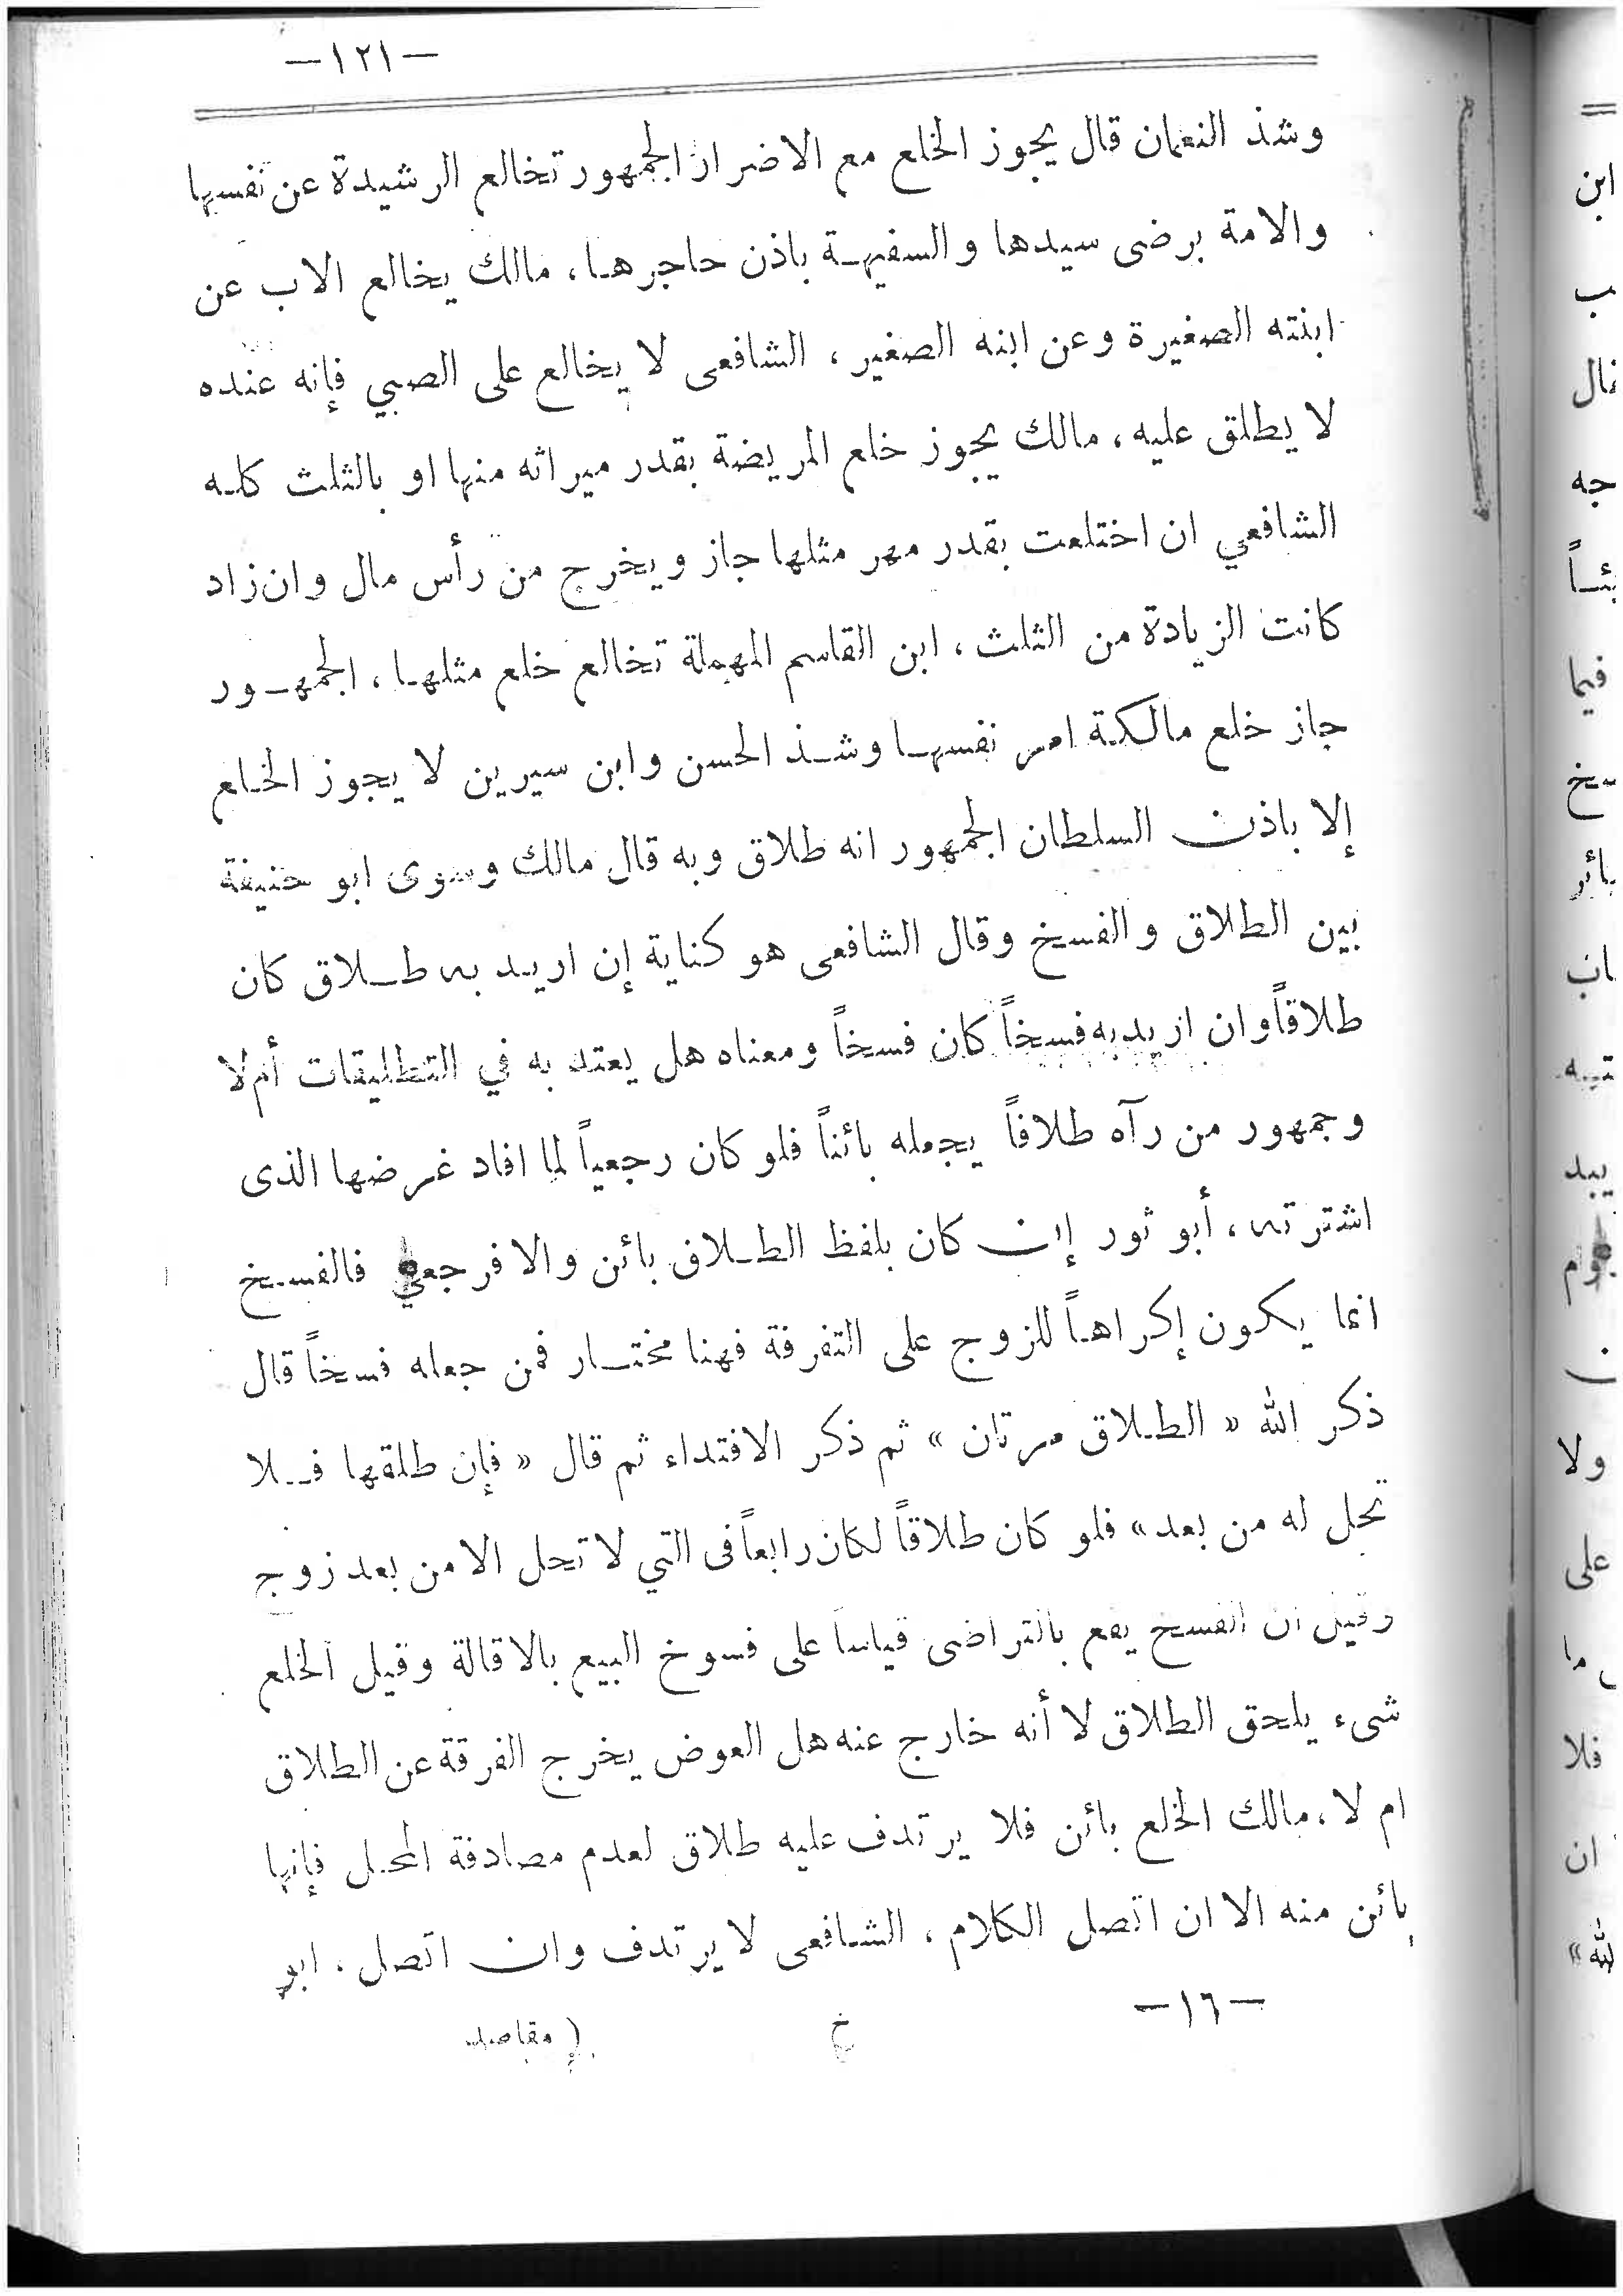 —١٢١—
وشذ النعمان قال يجوز الخلع مع الاضرار الجمهور تخالع الرشيدة عن نفسها
والامة برضى سيدها والسفيهة باذن حاجرها، مالك يخالع الاب عن
ابنته الصغيرة وعن ابنه الصغير، الشافعى لا يخالع على الصبي فإنه عنده
لا يطلق عليه، مالك يجوز خلع المريضة بقدر ميراثه منها او بالثلث كله
الشافعي ان اختلعت بقدر مهر مثلها جاز ويخرج من رأس مال وان زاد
كانت الزيادة من الثلث، ابن القاسم المهملة تخالع خلع مثلها، الجمهور
جاز خلع مالكة امر نفسها وشذ الحسن وابن سيرين لا يجوز الخلع
إلا باذن السلطان الجمهور انه طلاق وبه قال مالك وسوى ابو حنيفة
بين الطلاق والفسخ وقال الشافعى هو كناية إن اريد به طلاق كان
طلاقاً وان اريد به فسخاً كان فسخاً ومعناه هل يعتد به في التطليقات أم لا
وجمهور من رآه طلاقاً يجعله بائناً فلو كان رجعياً لما افاد غرضها الذى
اشترته، أبو ثور إن كان بلفظ الطلاق بائن والا فرجعي فالفسخ
انما يكون إكراهاً للزوج على التفرقة فهنا مختار فمن جعله فسخاً قال
ذكر الله « الطلاق مرتان » ثم ذكر الافتداء ثم قال « فإن طلقها فلا
تحل له من بعد » فلو كان طلاقاً لكان رابعاً فى التي لا تحل الا من بعد زوج
وقيل ان الفسخ يقع بالتراضى قياساً على فسوخ البيع بالاقالة وقيل الخلع
شىء يلحق الطلاق لا أنه خارج عنه هل العوض يخرج الفرقة عن الطلاق
ام لا، مالك الخلع بائن فلا يرتدف عليه طلاق لعدم مصادفة المحل فإنها
بائن منه الا ان اتصل الكلام، الشافعى لا يرتدف وان اتصل، ابو
—١٦—
خ
مقاصد
ابن
ب
جه
فيما
يبد
ولا
على
ما
فلا
ان